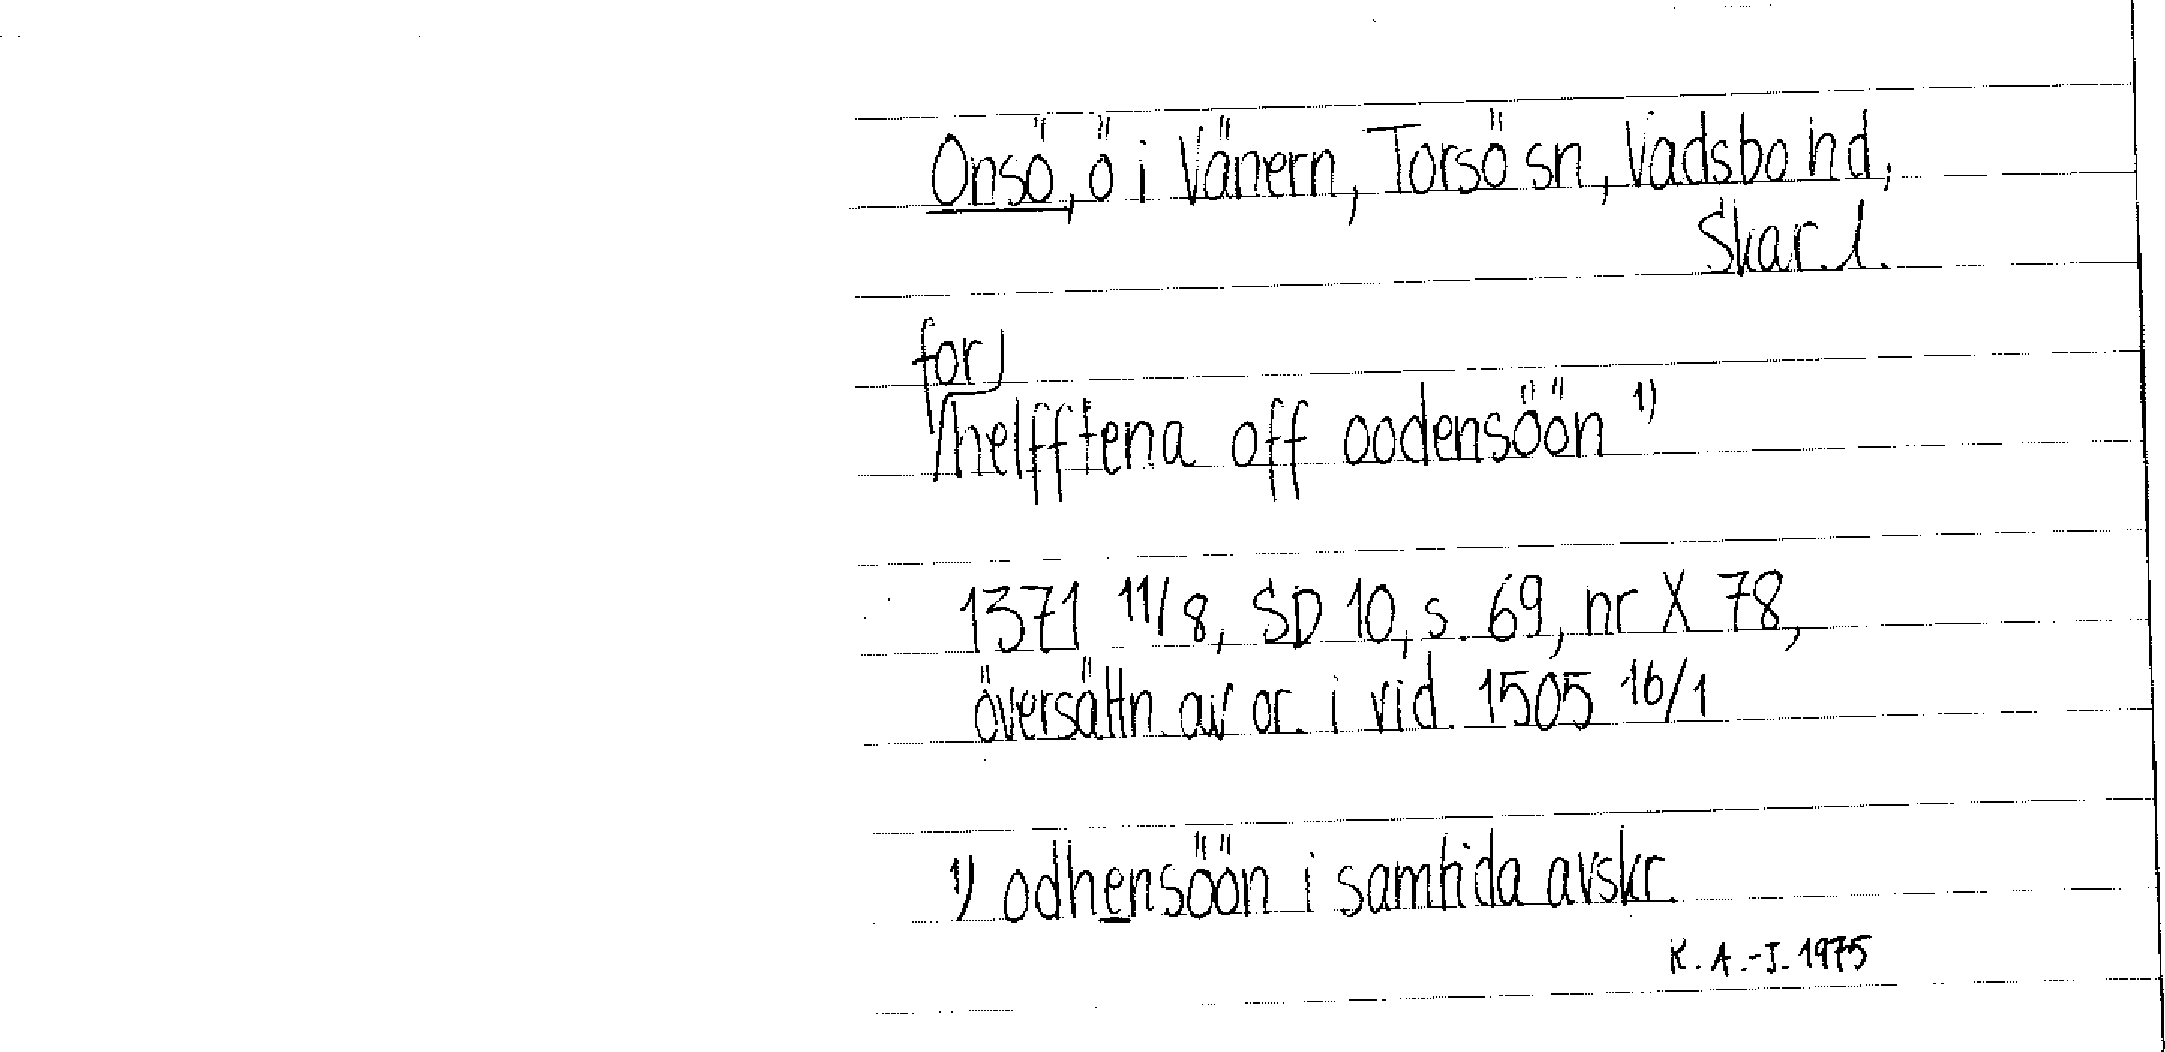 Onsö, ö i Vänern, Torsö sn, Vadsbo hd,
Skar. l.
for
helfftena off oodensöön 1)
1371 11/8, SD 10, s. 69, nr X 78,
översättn av or. i vid. 1505 16/1
1) odhensöön i samtida avskr.
K. A.-J. 1975